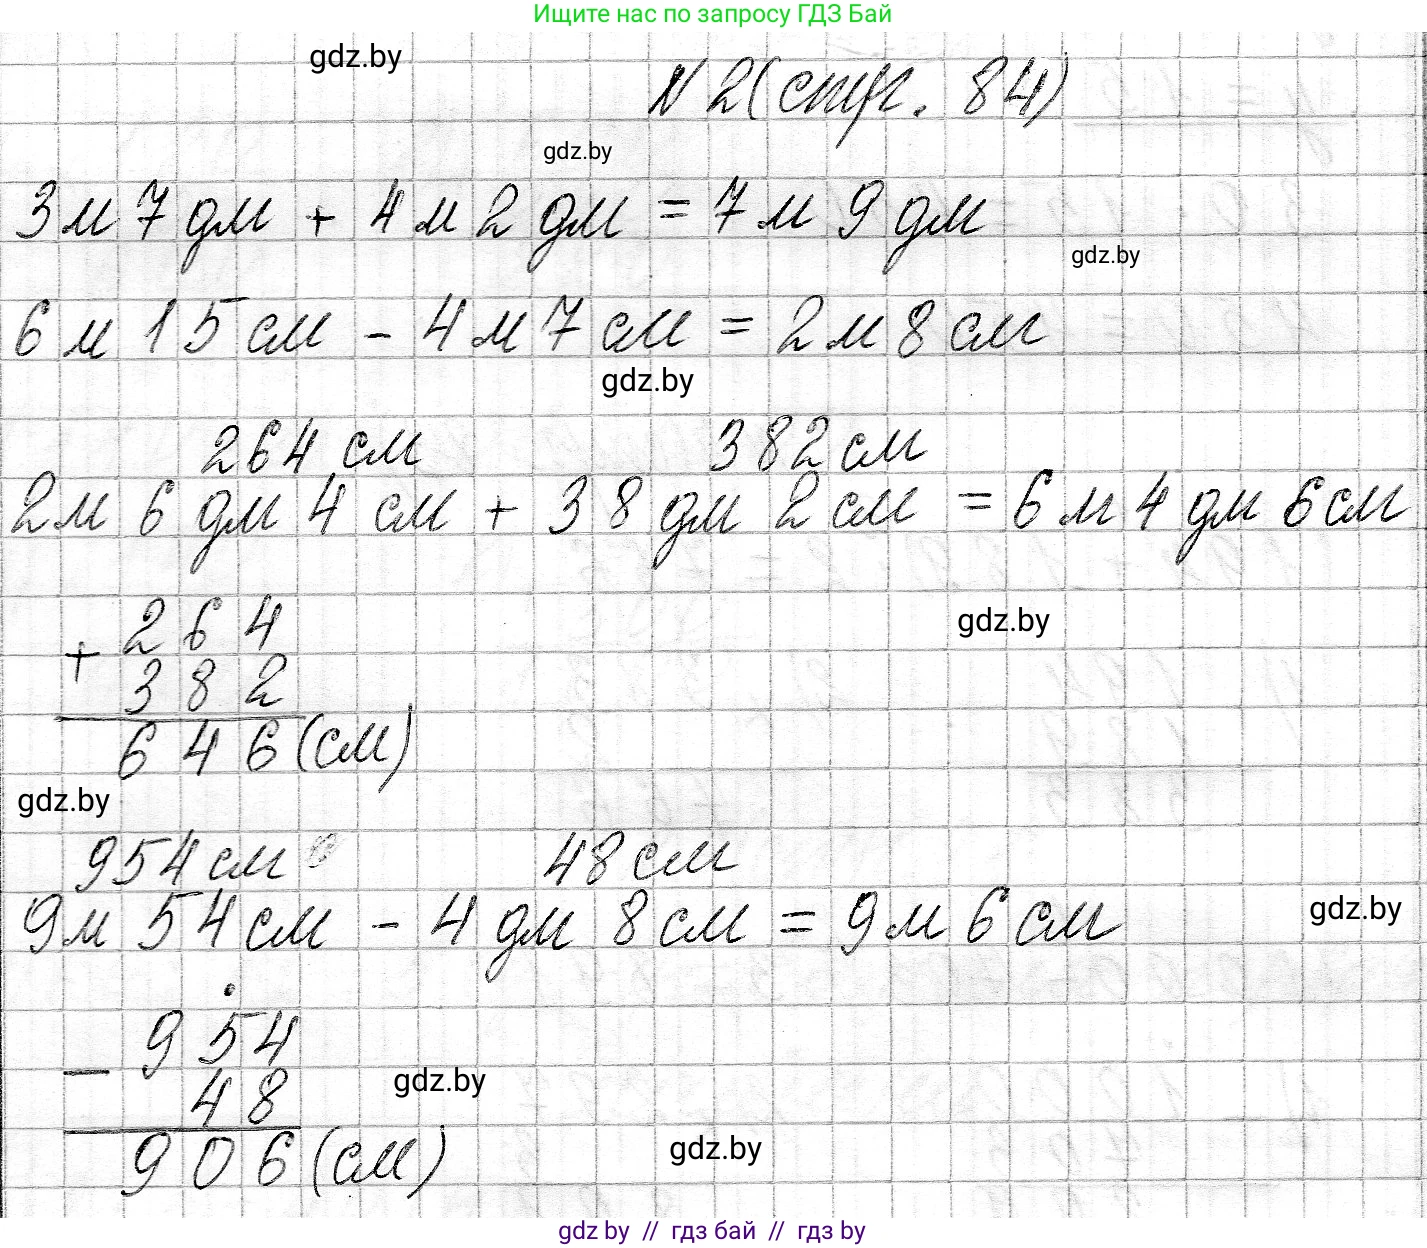 Ищите нас по запросу ГДЗ Бай
gdz.by
N 2 (стр. 84)
gdz.by
3м 7дм + 4м 2дм = 7м 9дм
gdz.by
6м 15см - 4м 7см = 2м 8см
gdz.by
264 см 382 см
2м 6дм 4см + 38дм 2см = 6м 4дм 6см
264
gdz.by
+
382
646 (см)
gdz.by
954 см 48 см
9м 54см - 4дм 8см = 9м 6см
gdz.by
954
-
48
gdz.by
906 (см)
gdz.by
gdz by // гдз бай // гдз by